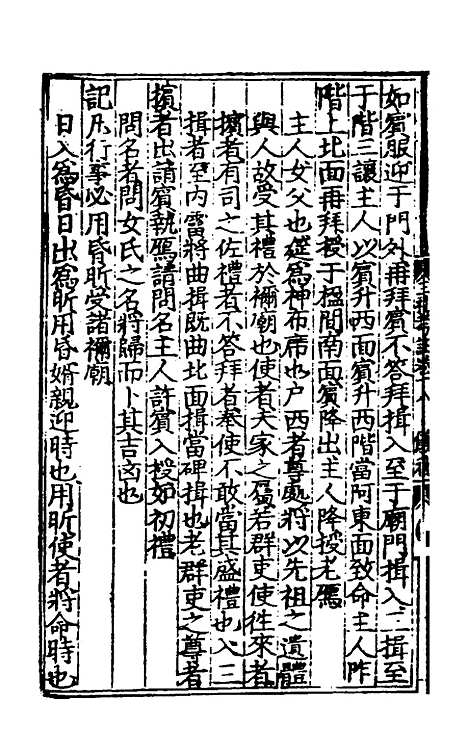 如賓服迎于門外再拜賓不答拜揖入至于廟門揖入三揖至
于階三讓主人以賓升西面賓升西階當阿東面致命主人阼
階上北面再拜授于楹間南面賓降出主人降授老鴈
主人女父也筵為神布席也戶西者尊處將以先祖之遺體
與人故受其禮於禰廟也使者夫家之屬若群吏使徃來者
擯者有司之佐禮者不答拜者奉使不敢當其盛禮也入三
揖者至内霤將曲揖既曲北面揖當碑揖也老群吏之尊者
擯者出請賓執鴈請問名主人許賓入授如初禮
問名者問女氏之名將歸而卜其吉凶也
記凡行事必用昏昕受諸禰廟
日入為昏日出為昕用昏婿親迎時也用昕使者將命時也